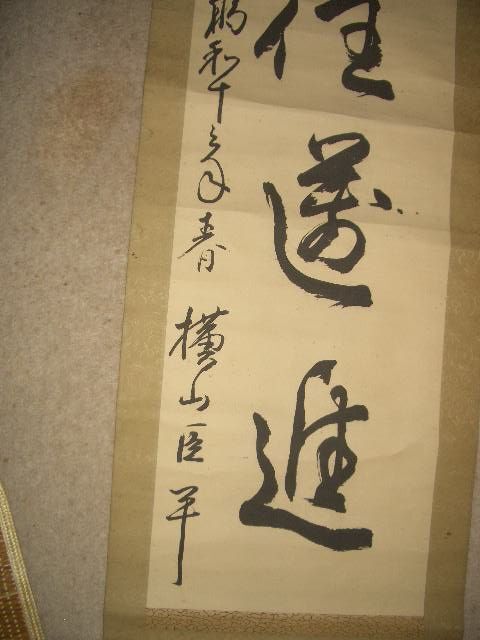 往邁進
昭和十三年春 横山臣平